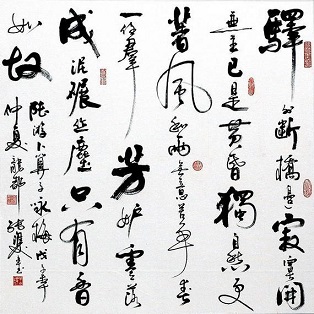 驛外斷橋邊寂寞開
無主已是黄昏獨自愁更
著風和雨無意苦爭春
一任羣芳妒零落
成泥碾作塵只有香
如故
陸游卜算子咏梅戊子年
仲夏